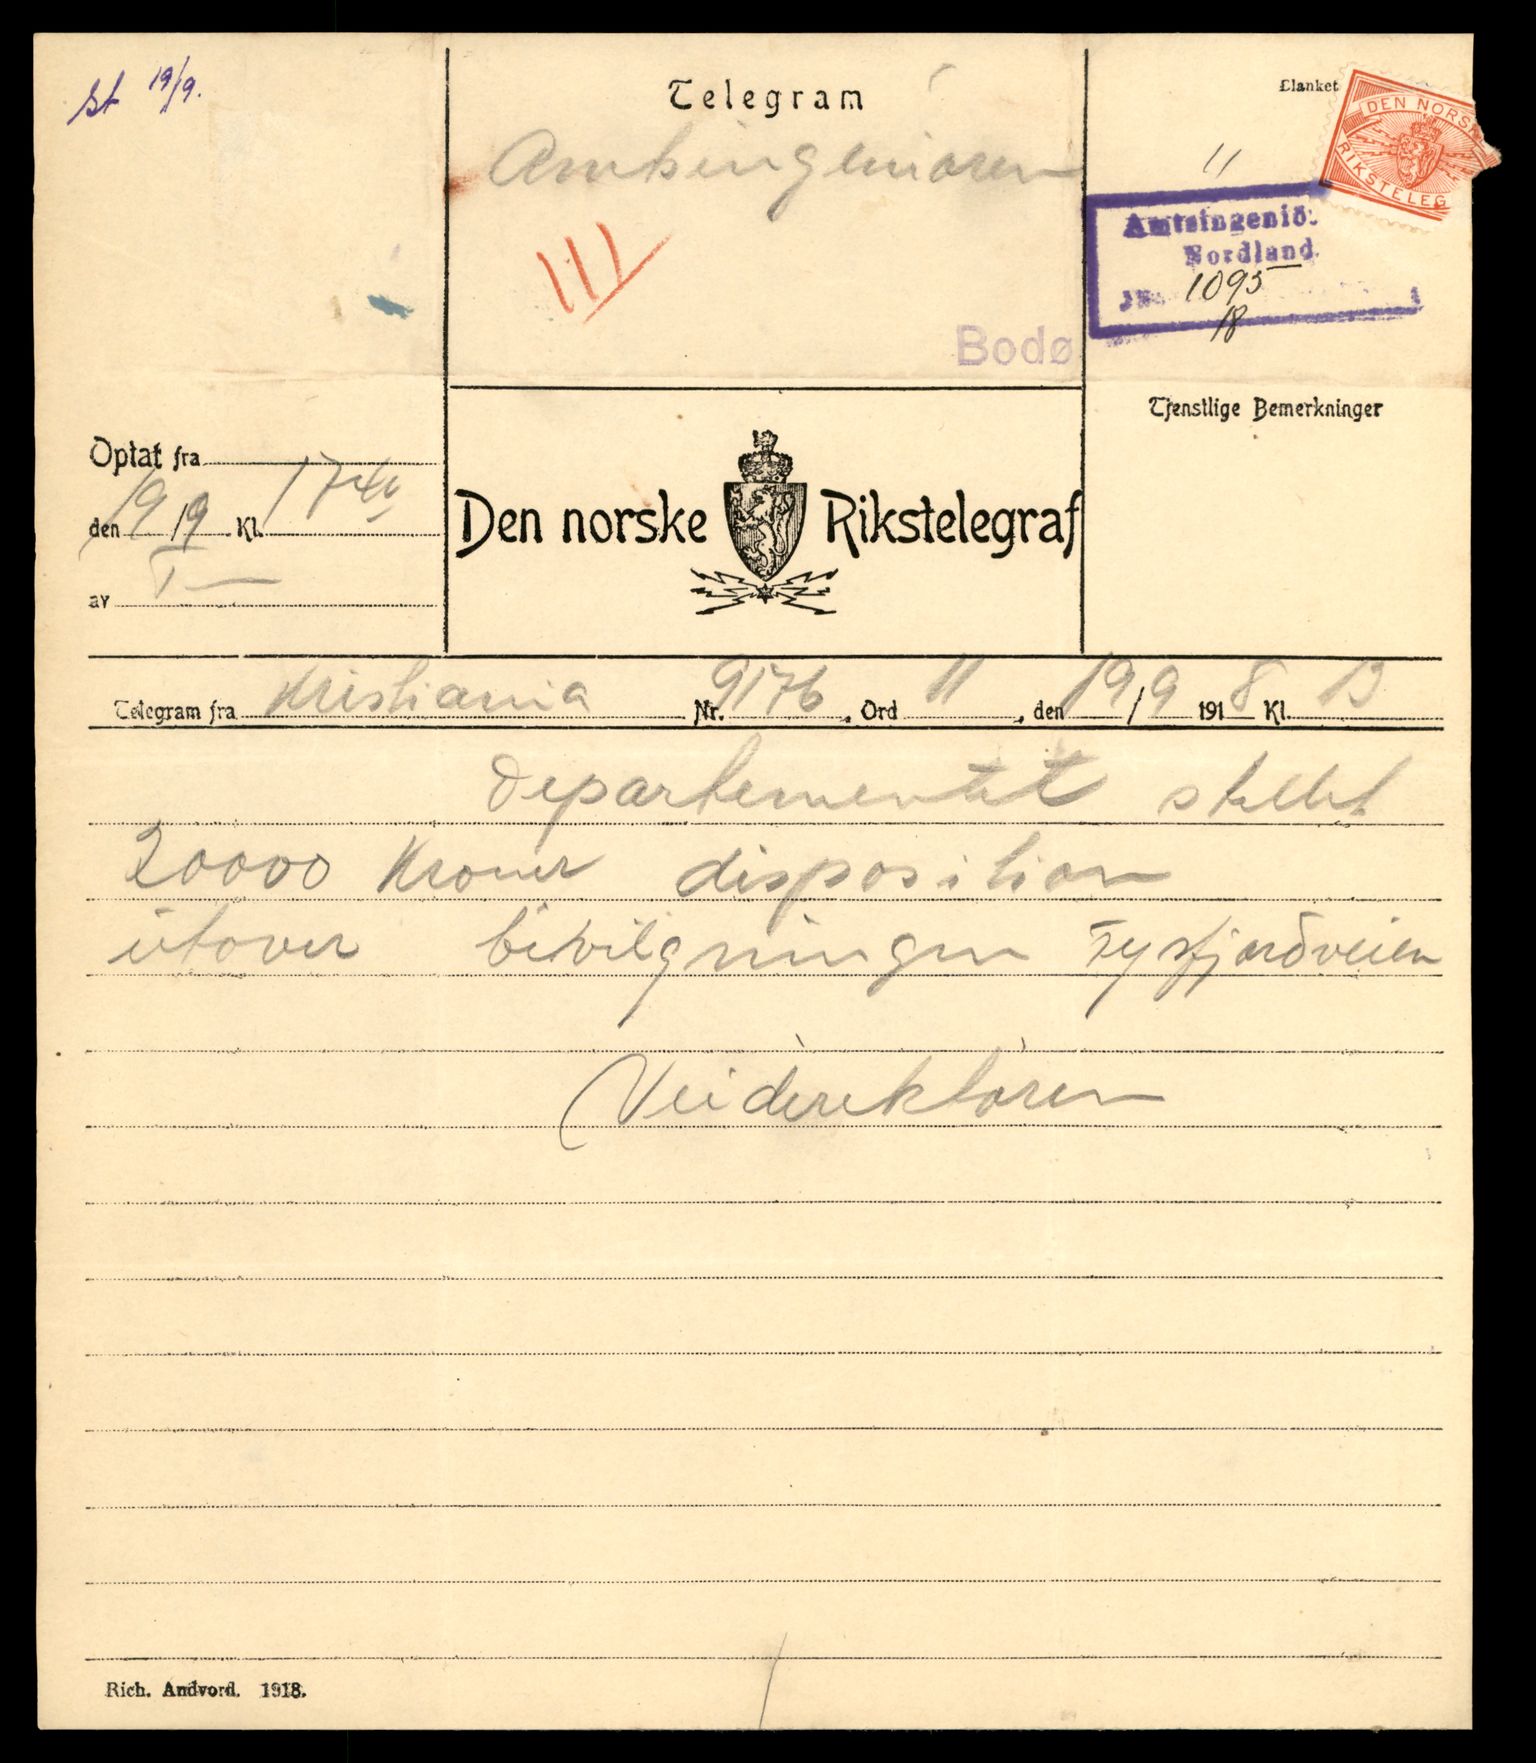 St 19/9.
Telegram
Amtsingeniøren
III
Bodø
Blanket
11
DEN NORSK
RIKSTELEG
Amtsingeniör
Nordland.
JNo. 1095
18
Tjenstlige Bemerkninger
Optat fra
den 19/9 Kl. 1740
av
Den norske Rikstelegraf
Telegram fra Kristiania Nr. 9176, Ord 11, den 19/9 1918 Kl. 13
Departementet stillet
20000 Kroner disposition
utover bevilgningen Tysfjordveien
Veidirektøren
Rich. Andvord. 1918.